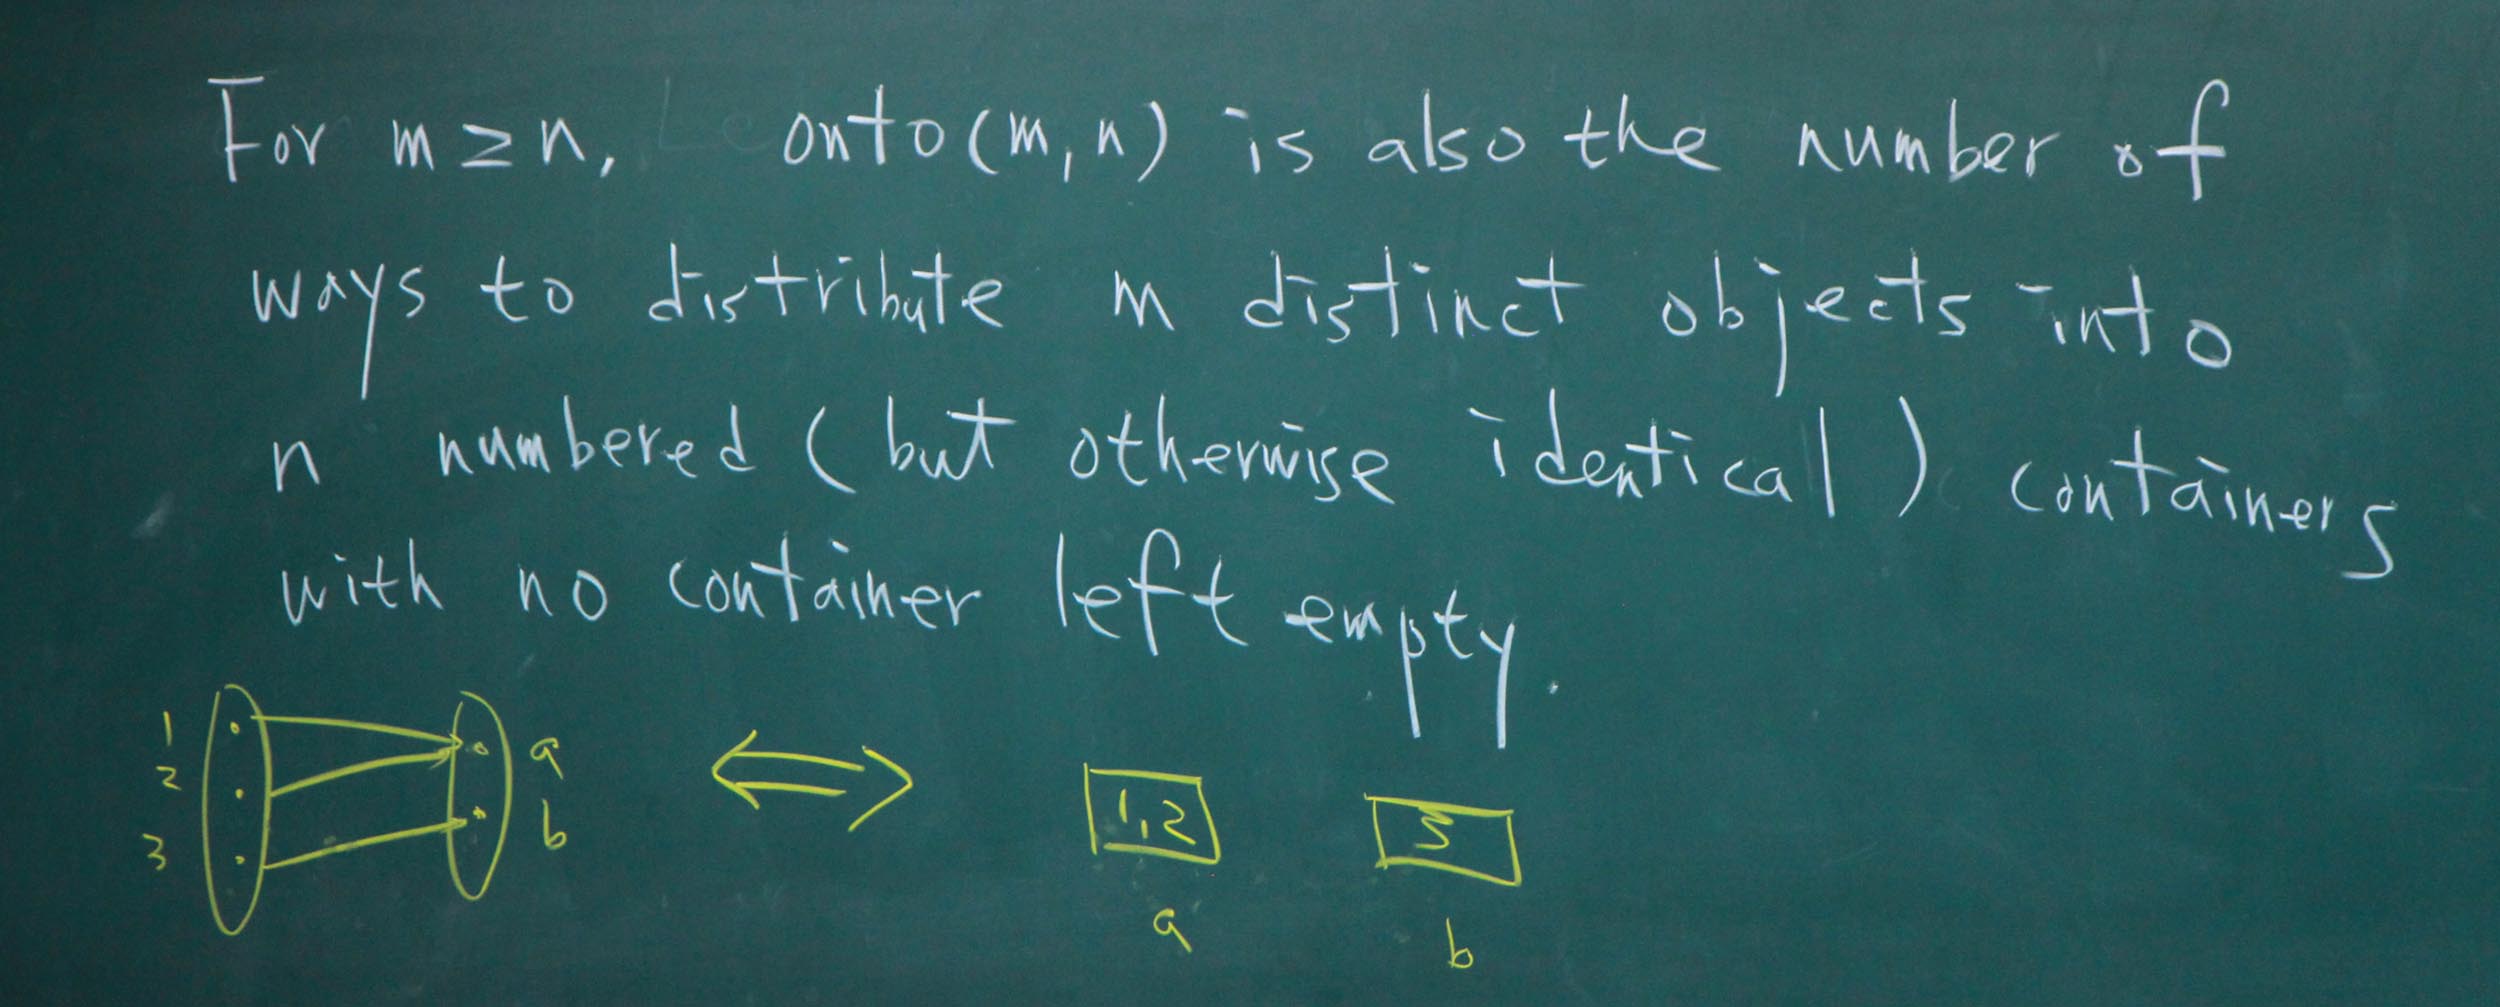 For m ≥ n, onto(m, n) is also the number of
ways to distribute m distinct objects into
n numbered (but otherwise identical) containers
with no container left empty.
1 a
2 b
3
1,2 3
a b